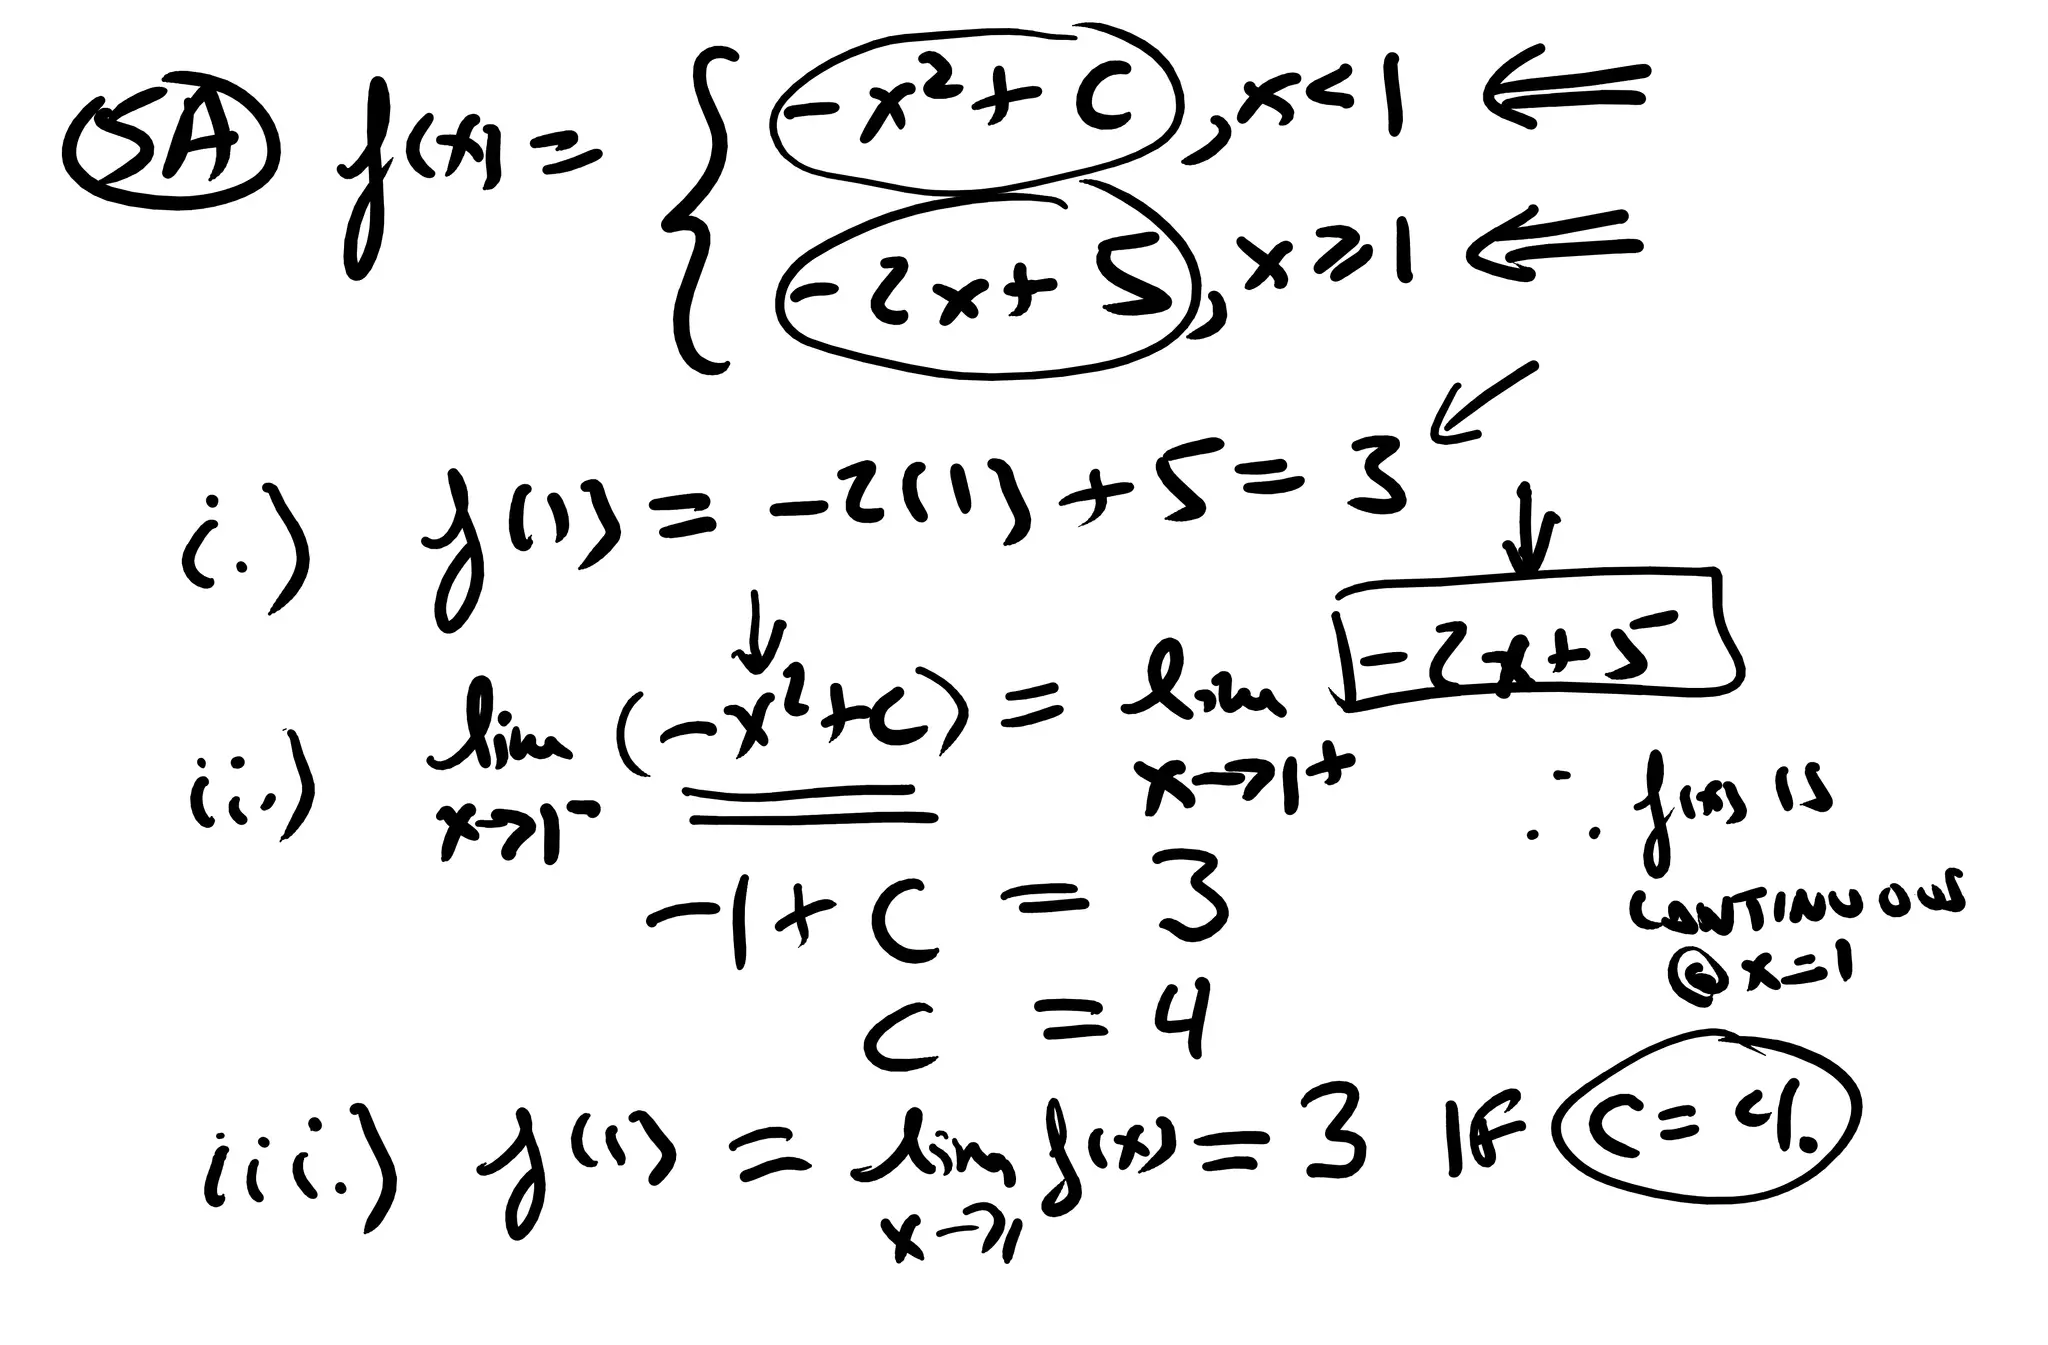 5A f(x) = { -x² + C, x < 1
-2x + 5, x ≥ 1
i.) f(1) = -2(1) + 5 = 3
ii.) lim x→1⁻ (-x² + c) = lim x→1⁺ -2x + 5
-1 + C = 3
C = 4
∴ f(x) is
CONTINUOUS
@ x = 1
iii.) f(1) = lim x→1 f(x) = 3 IF C = 4.